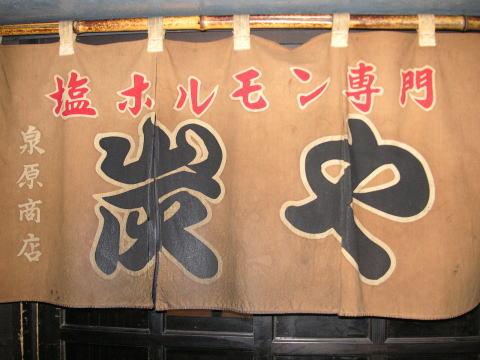 塩ホルモン専門
炭や
泉原商店